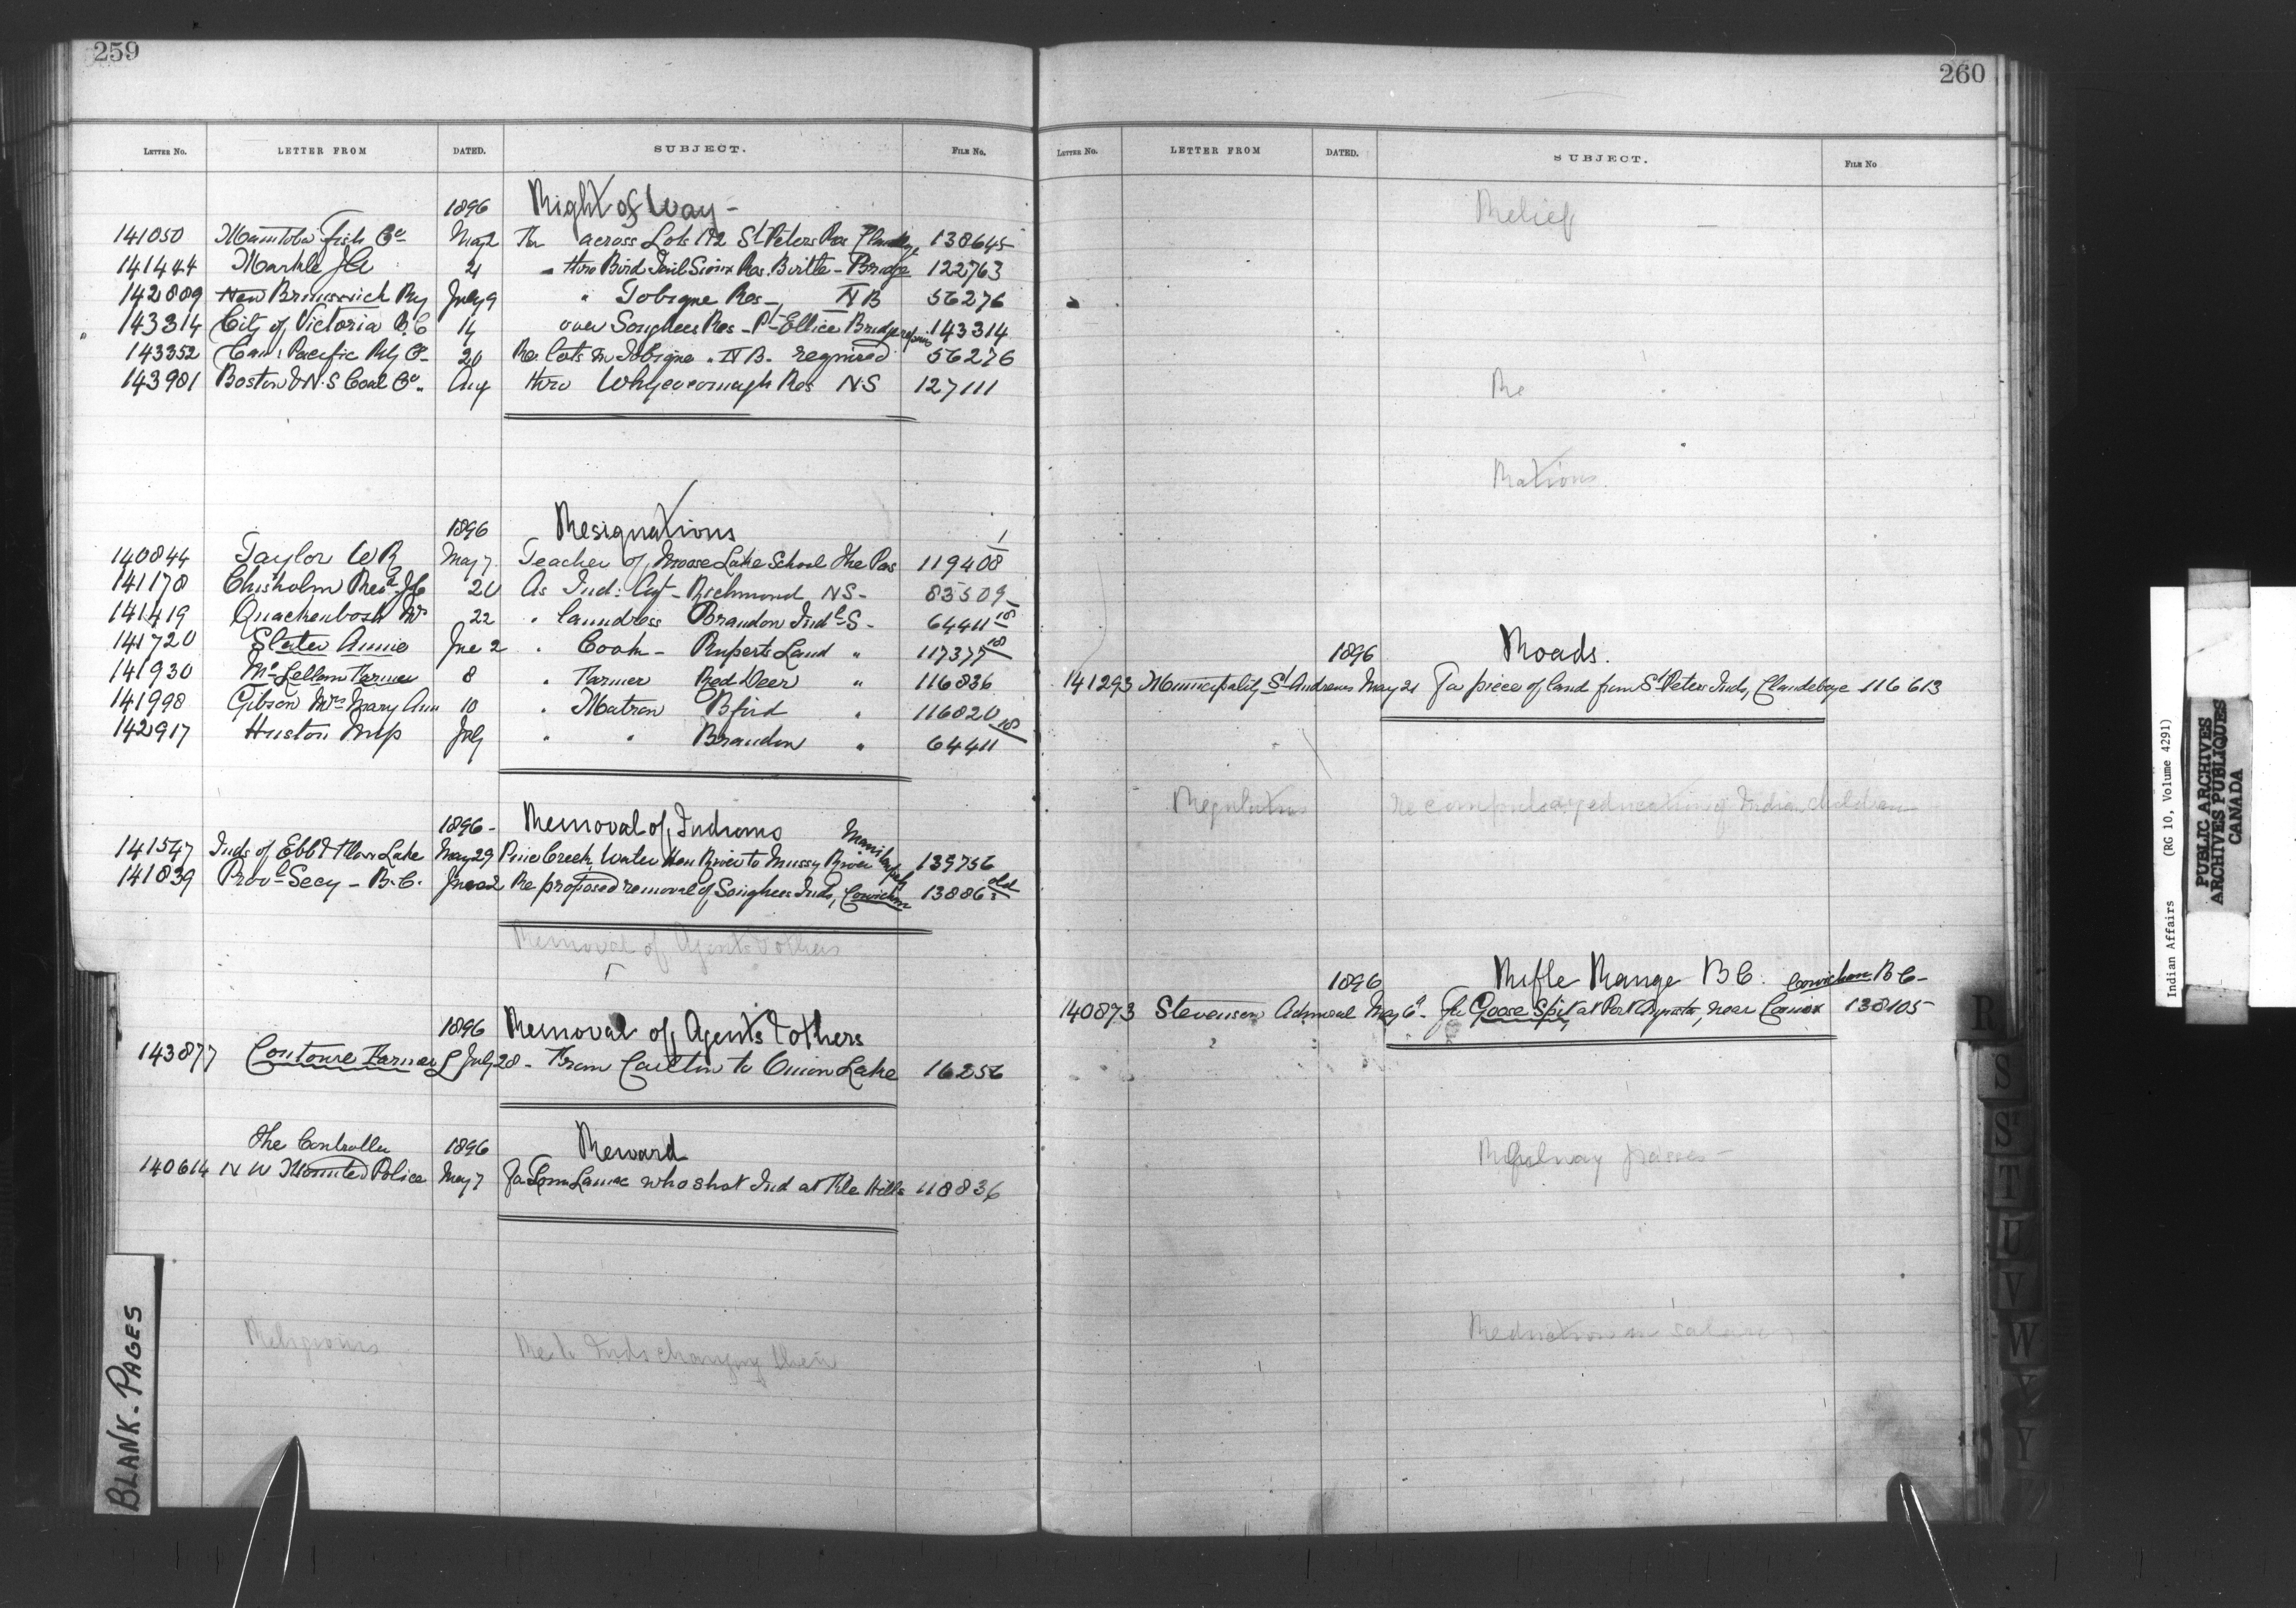 259
LETTER NO. LETTER FROM DATED. SUBJECT. FILE NO.
1896 Right of Way -
141050 Manitoba Fish Co May 2 For across Lots 1 & 2 St Peters Res 138645
141444 Markle J A 21 " thro Bird Tail Sioux Res. Birtle - Bridge 122763
142889 New Brunswick Ry July 9 " Tobique Res -, N B 56276
143314 City of Victoria B.C 14 over Songhees Res - Pt Ellice Bridge repairs 143314
143352 Can: Pacific Rly Co- 20 Re. lots in Tobique . N B. required 56276
143981 Boston & N.S Coal Co. Aug thro Whycocomagh Res N.S 127111
1896 Resignations
140844 Taylor W R May 7. Teacher of Moose Lake School the Pas 119408/1
141178 Chisholm Revd J C 20 As Ind: Agt - Richmond, N S - 83509
141419 Quackenbosh 22 . laundress Brandon Indl S - 64411/18
141720 Slater Annie Jne 2 . Cook - Ruperts Land " 117377/18
141930 McLellan Farmer 8 . Farmer Red Deer " 116836
141998 Gibson Mrs Mary Ann 10 . Matron Bford " 116820
142917 Huston July " " Brandon " 64411/18
1896 - Removal of Indians
141547 Inds of Ebb & Flow Lake May 29 Pine Creek, Water Hen River to Mossy River Manitopah 139756
141839 Provl Secy - B.C. June 2 Re proposed removal of Songhees Inds, Cowichan 13886 old
Removal of Agents & others
1896 Removal of Agents & others
143877 Contoure Farmer July 28 - From Carlton to Onion Lake 16256
The Controller 1896 Reward
140614 N W Mounted Police May 7 For Tom Lamac who shot Ind at File Hills 118836
Religions Re to Inds changing their
BLANK - PAGES
260
LETTER NO. LETTER FROM DATED. SUBJECT. FILE NO
Relief
Re
Rations.
1896 Roads.
141293 Municipality St Andrews May 21 For piece of land from St Peters Inds, Clandeboye 116613
Regulations re compulsory education of Indian children
1896 Rifle Range B C. Cowichan B C -
140873 Stevenson Admiral May 6 - For Goose Spit, at Port Augusta, near Comox 138105
Railway passes -
Reduction in salary
R
S
S
T
U
V
W
Y
Indian Affairs (RG 10, Volume 4291)
PUBLIC ARCHIVES
ARCHIVES PUBLIQUES
CANADA